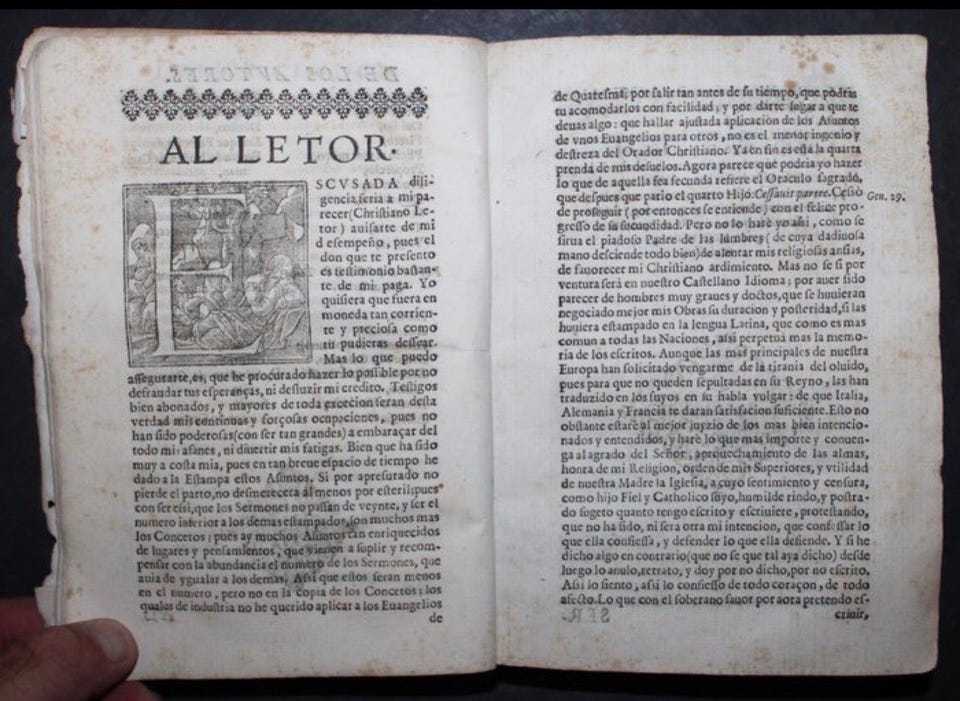 AL LETOR.
ESCVSADA dili-
gencia seria a mi pa-
recer (Christiano Le-
tor) auisarte de mi
desempeño, pues el
don que te presento
es testimonio bastan-
te de mi paga. Yo
quisiera que fuera en
moneda tan corrien-
te y preciosa como
tu pudieras dessear.
Mas lo que puedo
assegurarte, es, que he procurado hazer lo possible por no
defraudar tus esperanças, ni desluzir mi credito. Testigos
bien abonados, y mayores de toda excecion seran desta
verdad mis continuas y forçosas ocupaciones, pues no
han sido poderosas (con ser tan grandes) a embaraçar del
todo mis afanes, ni diuertir mis fatigas. Bien que ha sido
muy a costa mia, pues en tan breue espacio de tiempo he
dado a la Estampa estos Asuntos. Si por apresurado no
pierde el parto, no desmerecera al menos por esteril; pues
con ser assi, que los Sermones no passan de veynte, y ser el
numero inferior a los demas estampados, son muchos mas
los Concetos; pues ay muchos Asuntos tan enriquecidos
de lugares y pensamientos, que vienen a suplir y recom-
pensar con la abundancia el numero de los Sermones, que
auia de ygualar a los demas. Assi que estos seran menos
en el numero, pero no en la copia de los Concetos: los
quales de industria no he querido aplicar a los Euangelios
de
de Quaresma, por salir tan antes de su tiempo, que podràs
tu acomodarlos con facilidad; y por darte lugar a que te
deuas algo: que hallar ajustada aplicacion de los Asuntos
de vnos Euangelios para otros, no es el menor ingenio y
destreza del Orador Christiano. Ya en fin es esta la quarta
prenda de mis desuelos. Agora parece que podria yo hazer
lo que de aquella fea fecunda refiere el Oraculo sagrado,
que despues que pario el quarto Hijo: Cessauit parere. Cessò
Gen. 29.
de proseguir (por entonces se entiende) con el felice pro-
gresso de su fecundidad. Pero no lo harè yo assi, como se
sirua el piadoso Padre de las lumbres (de cuya dadiuosa
mano desciende todo bien) de alentar mis religiosas ansias,
de fauorecer mi Christiano ardimiento. Mas no se si por
ventura serà en nuestro Castellano Idioma; por auer sido
parecer de hombres muy graues y doctos, que se huuieran
negociado mejor mis Obras su duracion y posteridad, si las
huuiera estampado en la lengua Latina, que como es mas
comun a todas las Naciones, assi perpetuà mas la memo-
ria de los escritos. Aunque las mas principales de nuestra
Europa han solicitado vengarme de la tirania del oluido,
pues para que no queden sepultadas en su Reyno, las han
traduzido en los suyos en su habla vulgar: de que Italia,
Alemania y Francia te daran satisfacion suficiente. Esto no
obstante estarè al mejor juyzio de los mas bien intencio-
nados y entendidos, y harè lo que mas importe y conuen-
ga al agrado del Señor, aprouechamiento de las almas,
honra de mi Religion, orden de mis Superiores, y vtilidad
de nuestra Madre la Iglesia, a cuyo sentimiento y censura,
como hijo Fiel y Catholico suyo, humilde rindo, y postra-
do sugeto quanto tengo escrito y escriuiere, protestando,
que no ha sido, ni serà otra mi intencion, que confessar lo
que ella confiessa, y defender lo que ella defiende. Y si he
dicho algo en contrario (que no se que tal aya dicho) desde
luego lo anulo, retrato, y doy por no dicho, por no escrito.
Assi lo siento, assi lo confiesso de todo coraçon, de todo
afecto. Lo que con el soberano fauor por aora pretendo es-
criuir,